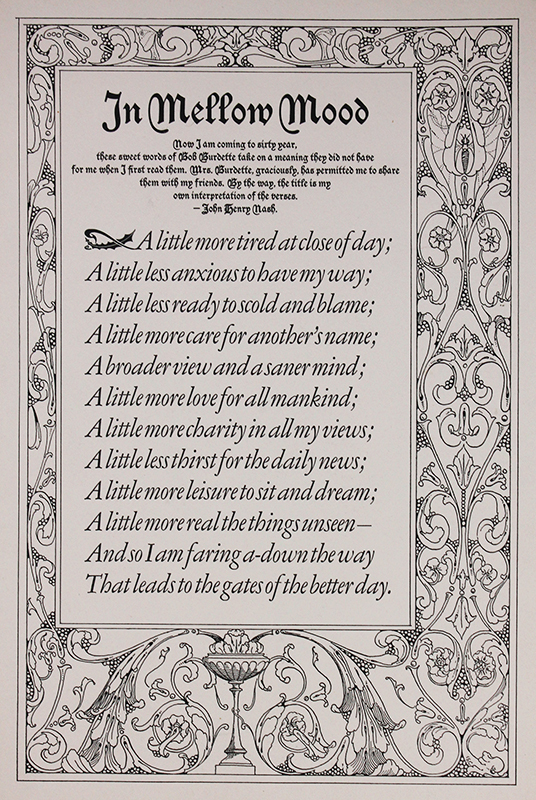 In Mellow Mood
Now I am coming to sixty year,
these sweet words of Bob Burdette take on a meaning they did not have
for me when I first read them. Mrs. Burdette, graciously, has permitted me to share
them with my friends. By the way, the title is my
own interpretation of the verses.
— John Henry Nash.
A little more tired at close of day;
A little less anxious to have my way;
A little less ready to scold and blame;
A little more care for another's name;
A broader view and a saner mind;
A little more love for all mankind;
A little more charity in all my views;
A little less thirst for the daily news;
A little more leisure to sit and dream;
A little more real the things unseen—
And so I am faring a-down the way
That leads to the gates of the better day.